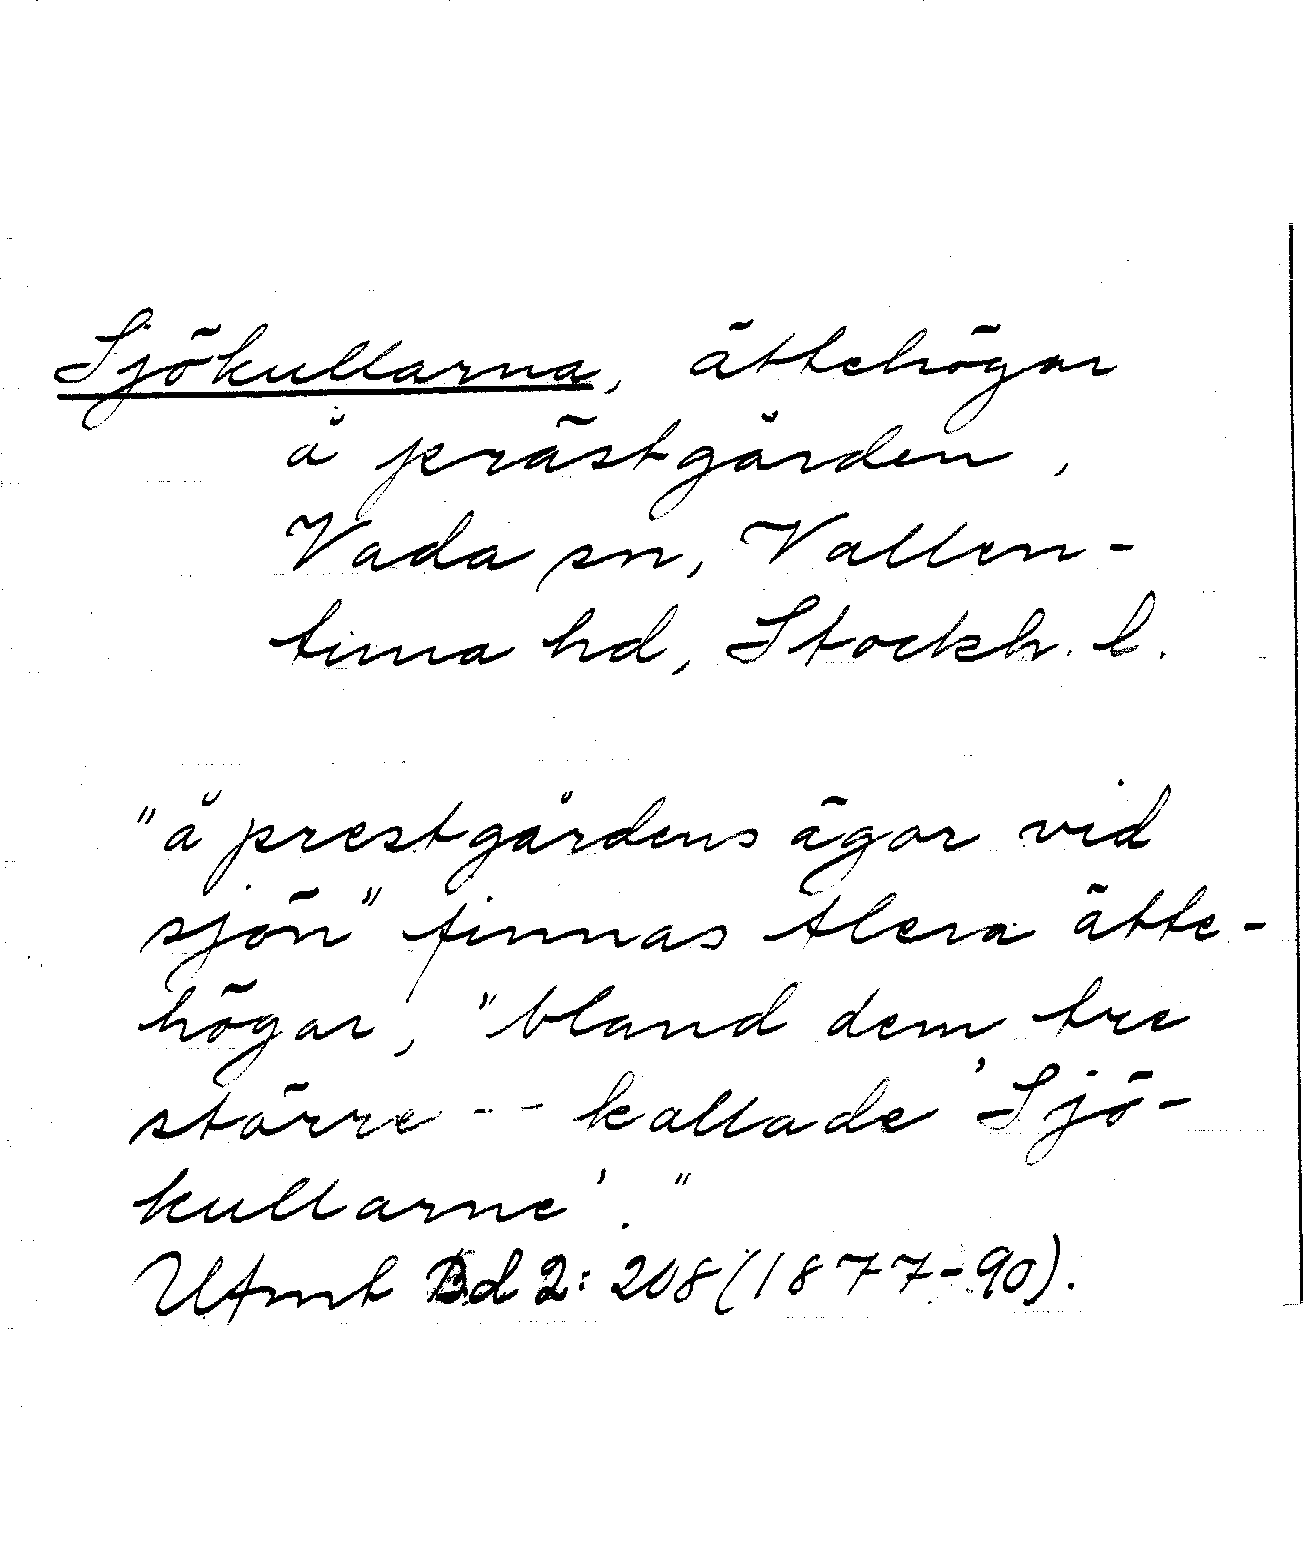 Sjökullarna, ättehögar
å prästgården,
Vada sn, Vallen-
tuna hd, Stockh. l.
"å prestgårdens ägor vid
sjön" finnas flera ätte-
högar, "bland dem tre
större -- kallade 'Sjö-
kullarne'."
Ufmt Bd 2: 208 (1877-90).